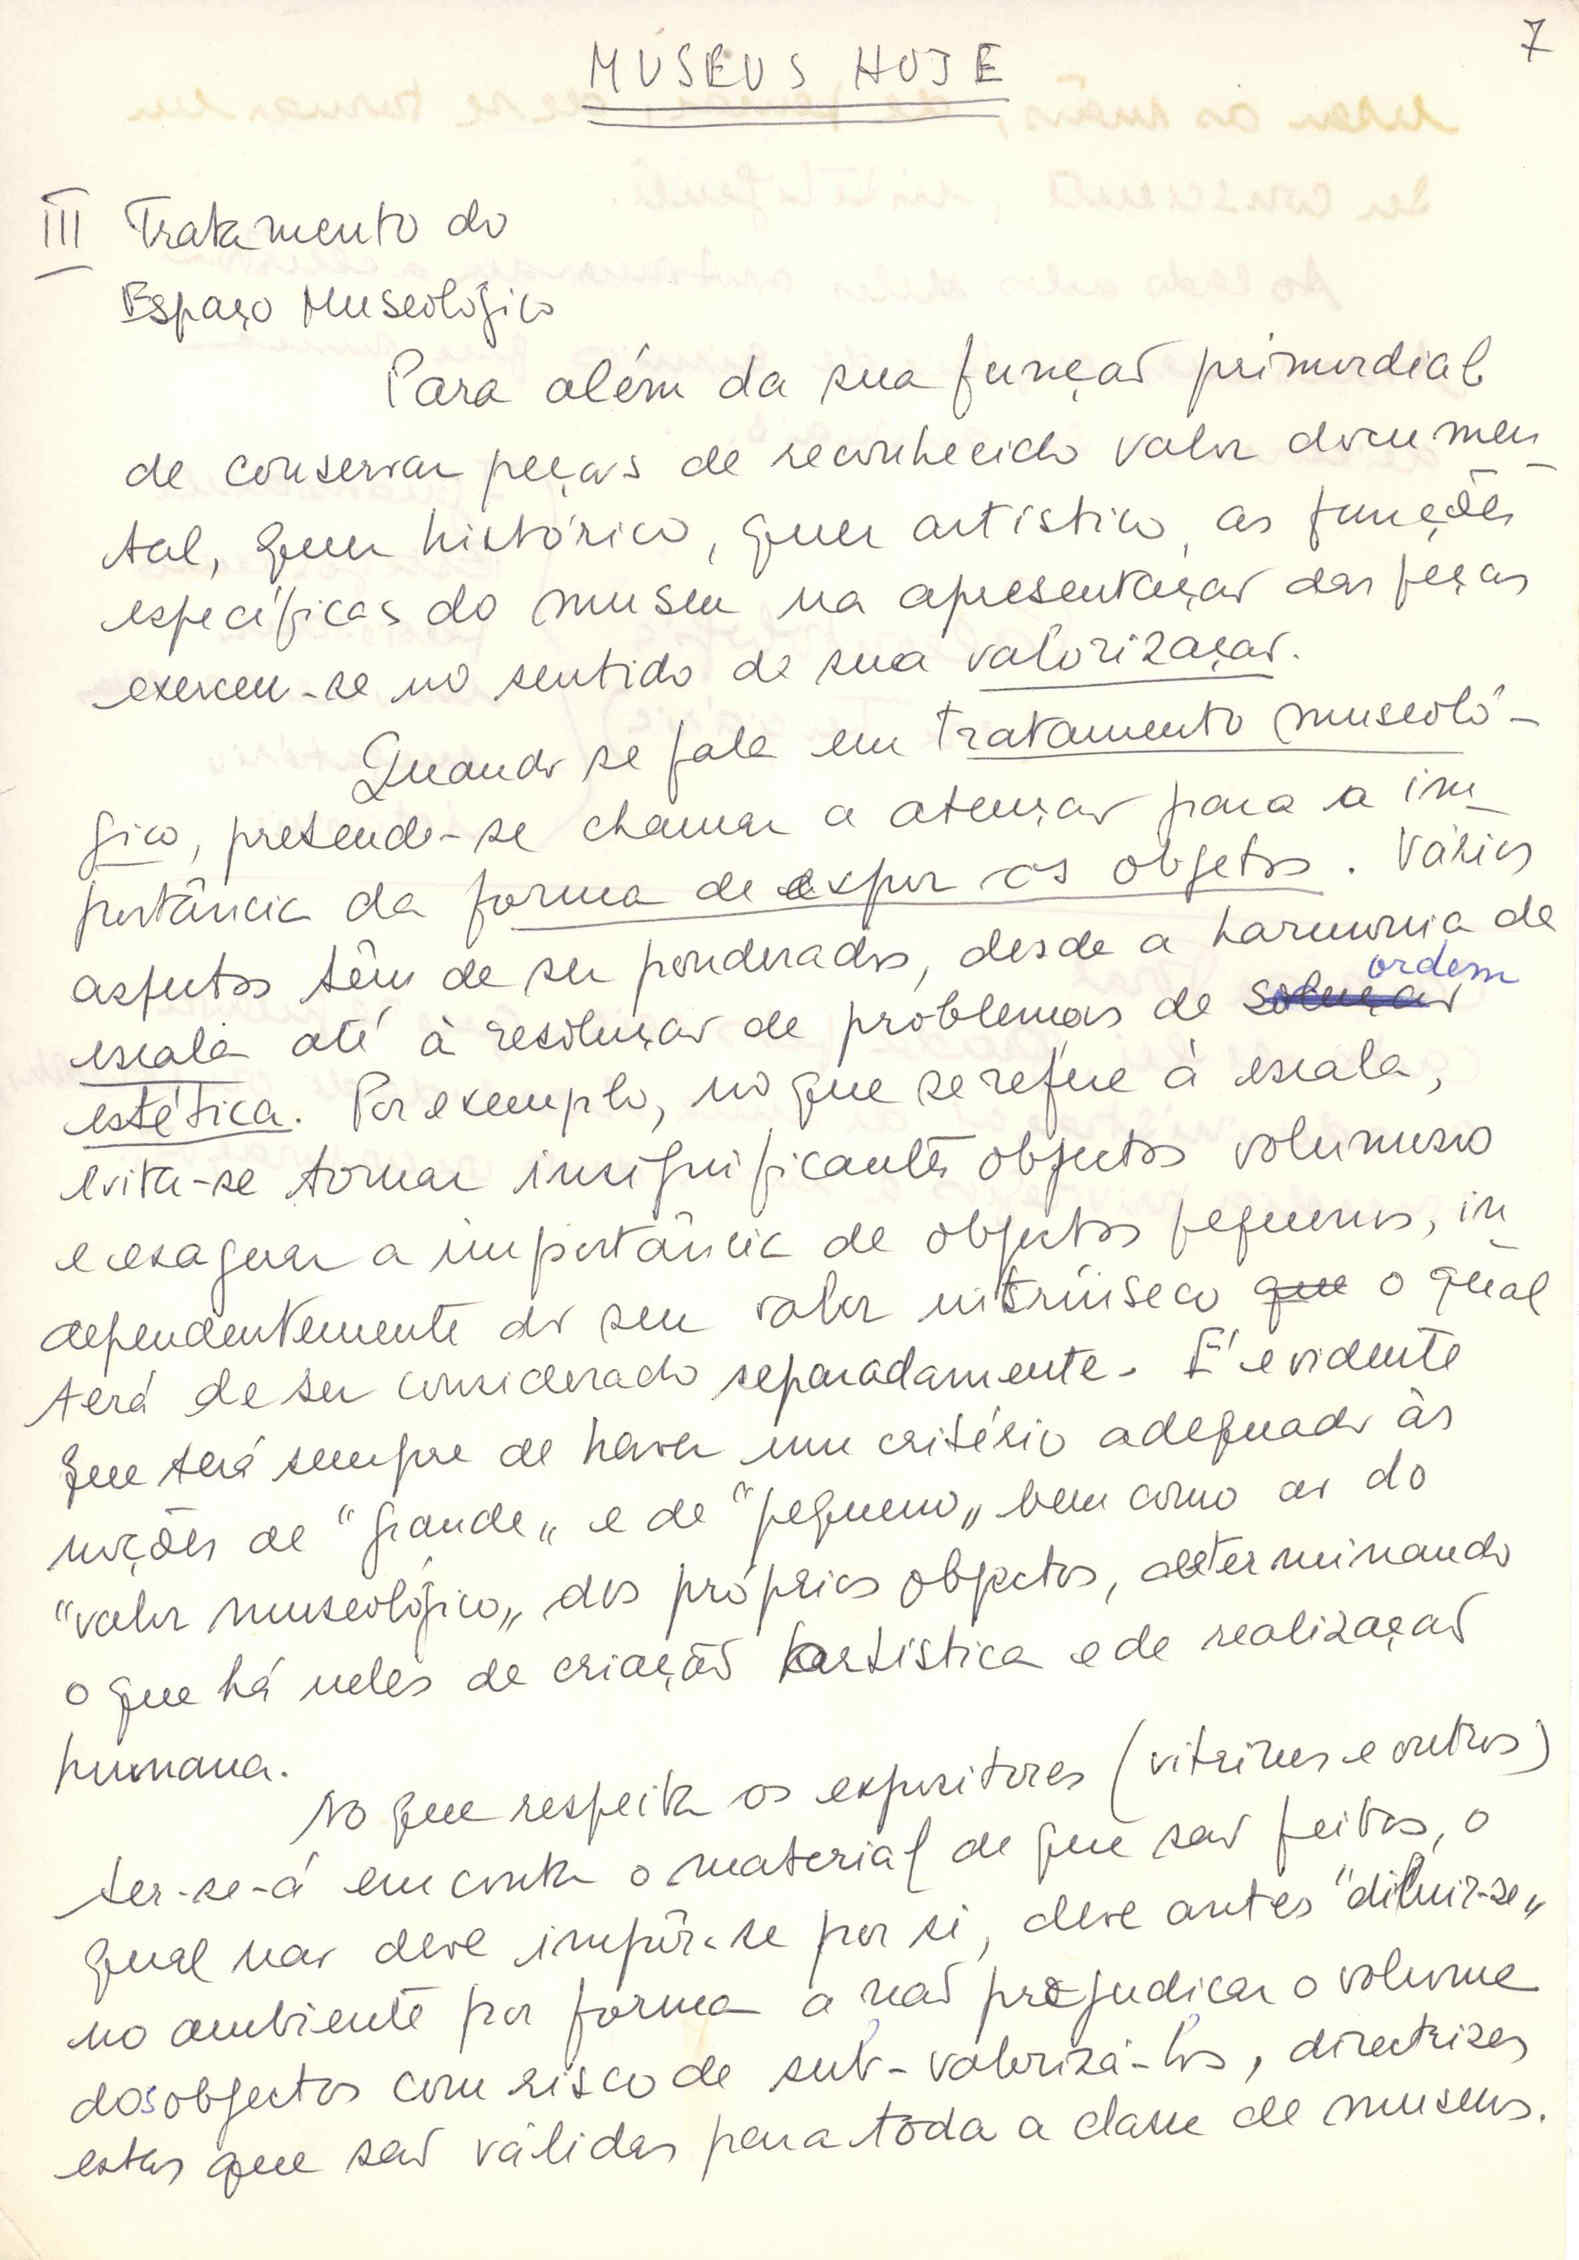 7
MUSEUS HOJE
III Tratamento do
Espaço Museológico
Para além da sua função primordial
de conservar peças de reconhecido valor documen-
tal, quer histórico, quer artístico, as funções
específicas do museu na apresentação das peças
exercem-se no sentido de sua valorização.
Quando se fala em tratamento museoló-
gico, pretende-se chamar a atenção para a im-
portância da forma de expor os objetos. Vários
aspectos têm de ser ponderados, desde a harmonia de
escala até à resolução de problemas de solução ordem
estética. Por exemplo, no que se refere à escala,
evita-se tornar insignificantes objectos volumosos
e exagerar a importância de objectos pequenos, in-
dependentemente do seu valor intrínseco que o qual
terá de ser considerado separadamente. É evidente
que terá sempre de haver um critério adequado às
noções de "grande" e de "pequeno" bem como ao do
"valor museológico" dos próprios objectos, determinando
o que há neles de criação artística e de realização
humana.
No que respeita os expositores (vitrines e outros)
ter-se-á em conta o material de que são feitos, o
qual não deve impôr-se por si, deve antes "diluir-se"
no ambiente por forma a não prejudicar o volume
dos objectos com risco de sub-valorizá-los, directrizes
estas que são válidas para toda a classe de museus.